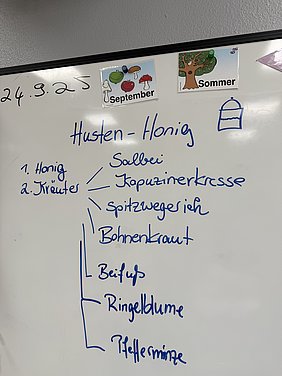 24.9.25
September
Sommer
Husten-Honig
1. Honig
2. Kräuter
Salbei
Kapuzinerkresse
Spitzwegerich
Bohnenkraut
Beifuß
Ringelblume
Pfefferminze